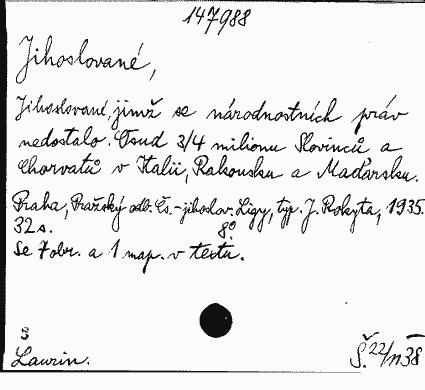 147988
Jihoslované,
Jihoslované, jimž se národnostních práv
nedostalo. Osud 3/4 milionu Slovinců a
Chorvatů v Italii, Rakousku a Maďarsku.
Praha, Pražský odb. Čs.-jihoslov. Ligy, typ. J. Rokyta, 1935.
32 s. 8°
Se 7 obr. a 1 map. v textu.
S
Laurin. Š 22/n 38